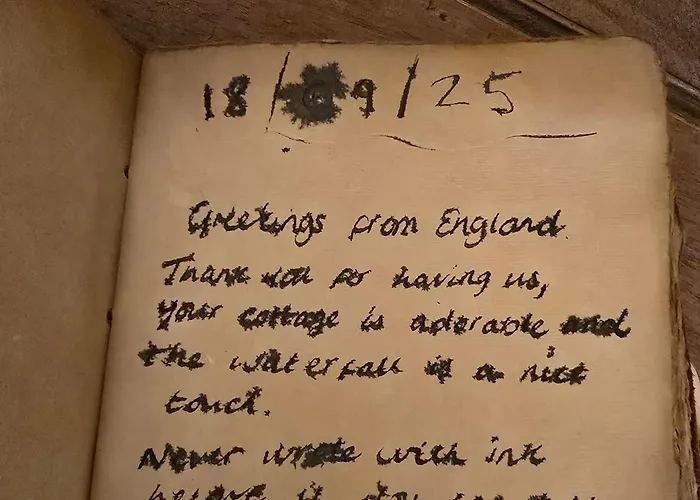 18/09/25
Greetings from England.
Thank you for having us,
your cottage is adorable and
the waterfall is a nice
touch.
Never wrote with ink
before it